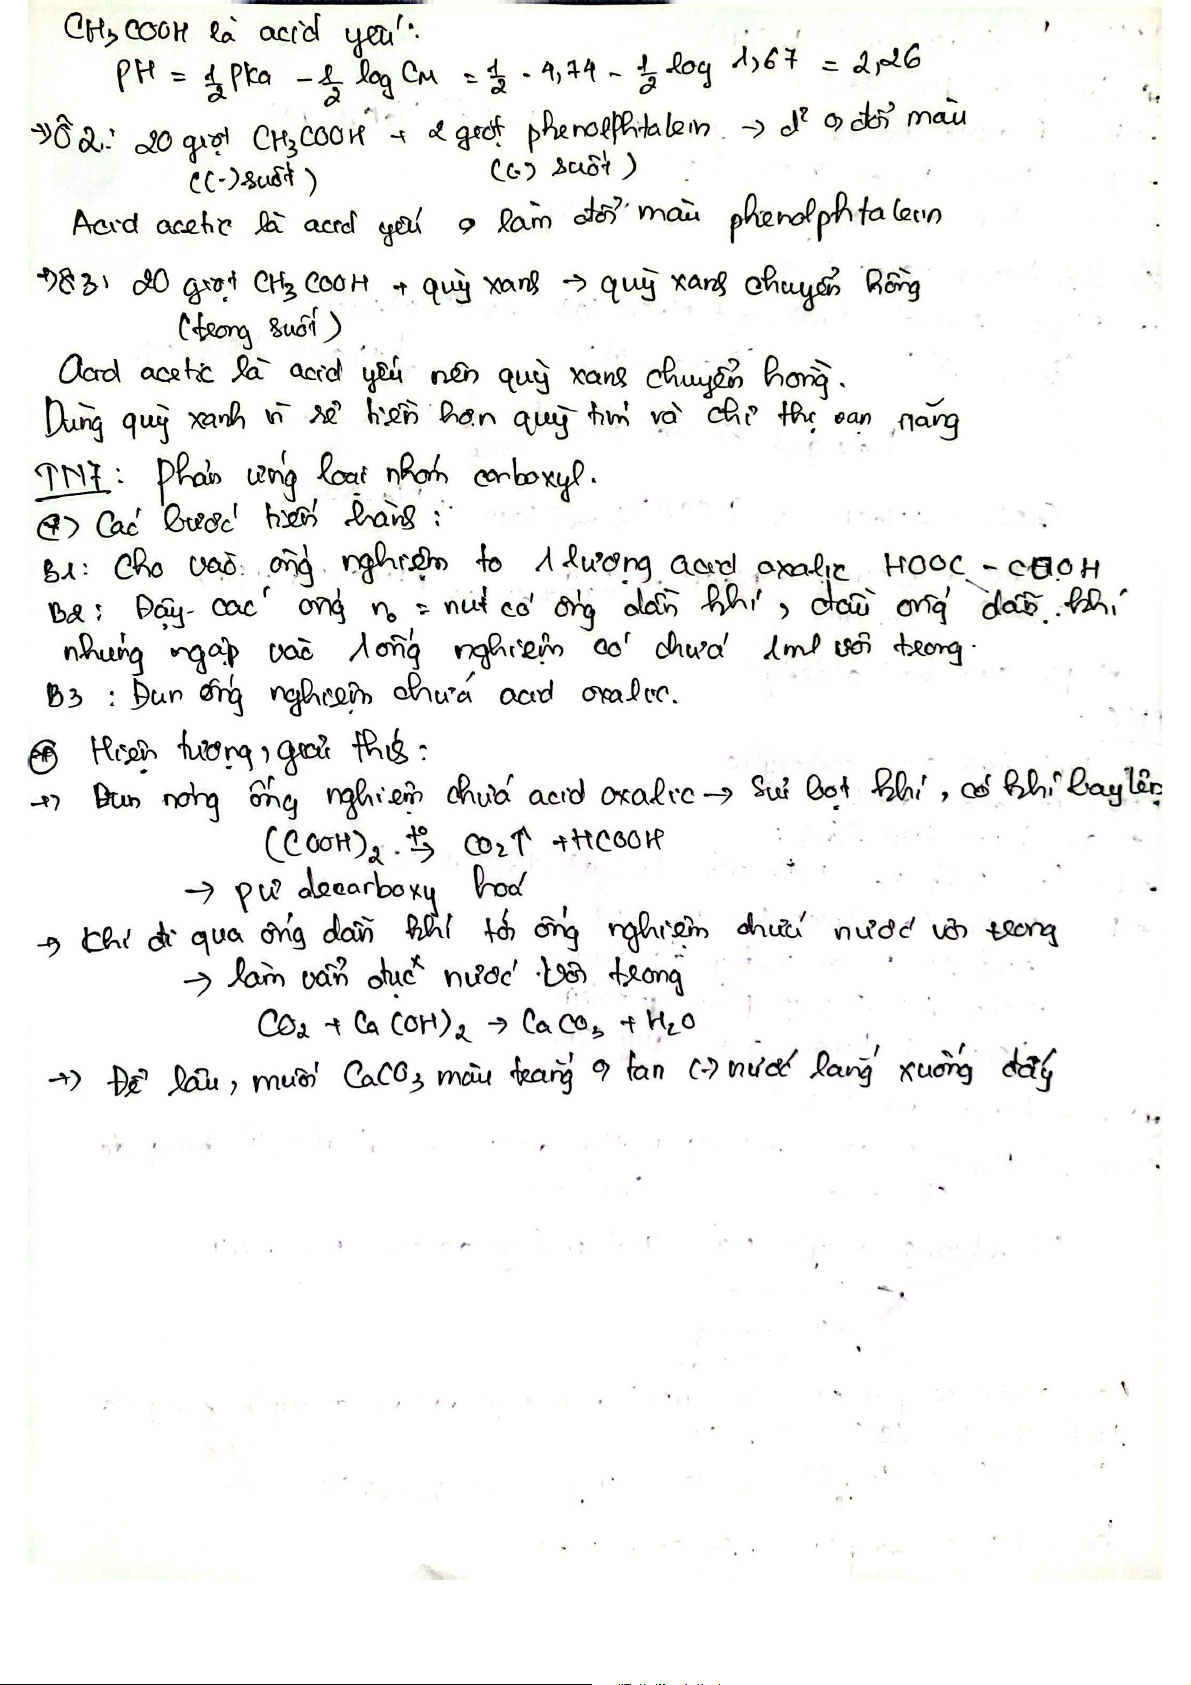 CH₃COOH là acid yếu:
PH = 1/2 Pka - 1/2 log CM = 1/2 . 4,74 - 1/2 log 1,67 = 2,26
→ Ô2: 20 giọt CH₃COOH + 2 giọt phenolphtalein → d² o đổi màu
((-) suốt) ((-) suốt)
Acid acetic là acid yếu o làm đổi màu phenolphtalein
→ Ô3: 20 giọt CH₃COOH + quỳ xanh → quỳ xanh chuyển hồng
(trong suốt)
Acid acetic là acid yếu nên quỳ xanh chuyển hồng.
Dùng quỳ xanh vì rẻ tiền hơn quỳ tím và chỉ thị vạn năng
TN7: Phản ứng loại nhóm carboxyl.
Các bước tiến hành:
B1: Cho vào ống nghiệm to 1 lượng acid oxalic HOOC - COOH
B2: Đậy các ống no = nút có ống dẫn khí, đầu ống dẫn khí
nhúng ngập vào 1 ống nghiệm có chứa 1ml vôi trong.
B3: Đun ống nghiệm chứa acid oxalic.
Hiện tượng, giải thích:
+) Đun nóng ống nghiệm chứa acid oxalic → Sủi bọt khí, có khí bay lên
(COOH)₂ t°→ CO₂↑ + HCOOH
→ pư decarboxy hoá
→ Khí đi qua ống dẫn khí tới ống nghiệm chứa nước vôi trong
→ làm vẩn đục nước vôi trong
CO₂ + Ca(OH)₂ → CaCO₃ + H₂O
+) Để lâu, muối CaCO₃ màu trắng o tan (-) nước lắng xuống đáy